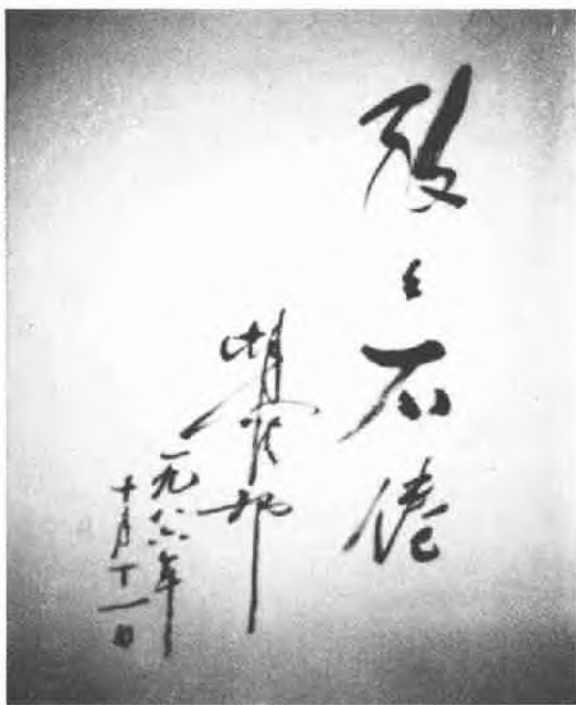 孜々不倦
胡耀邦
一九八六年
十月十一日